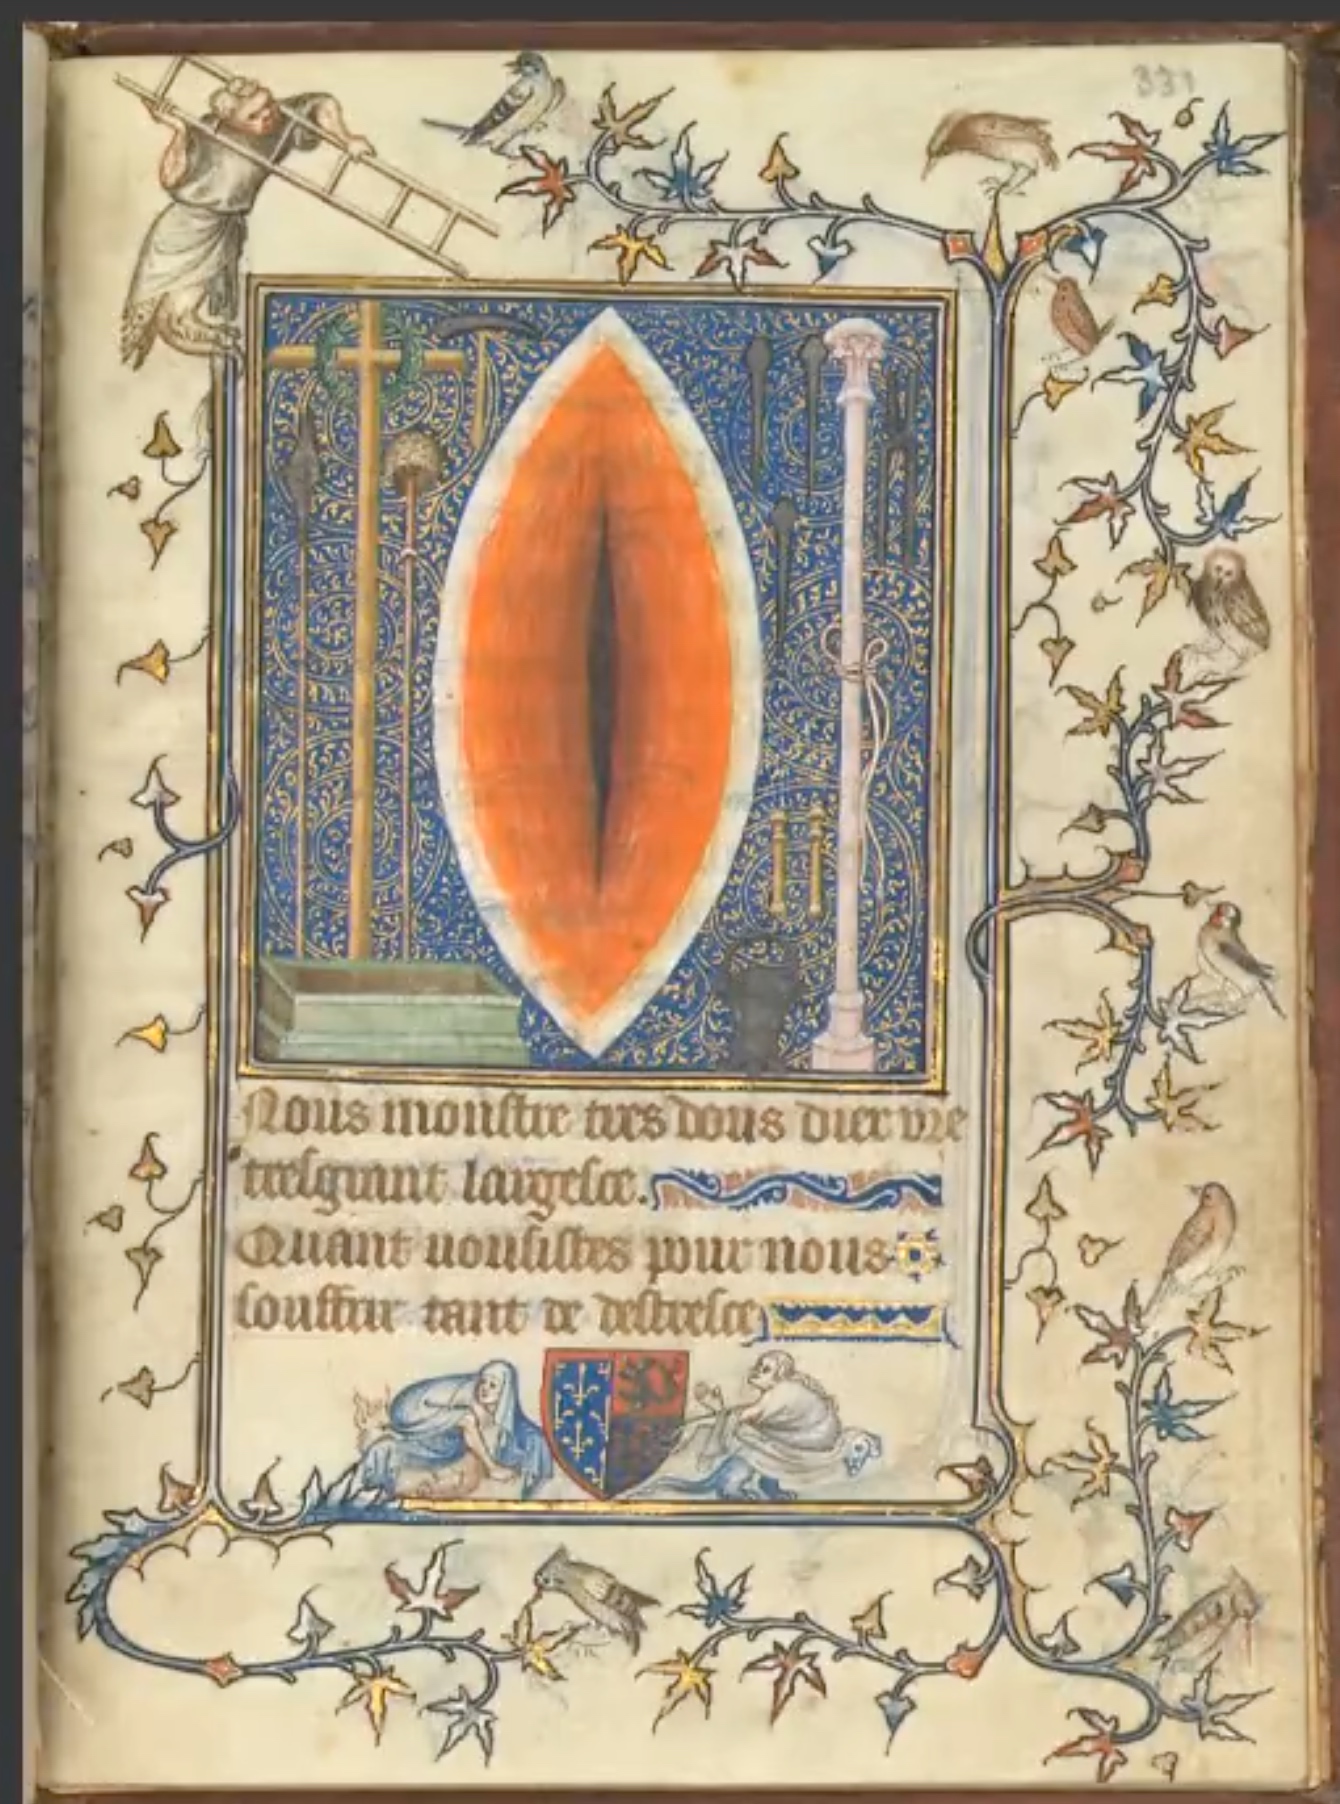 331
Nous monstre tres dous dier vre
tresgrant largesce.
Quant vousistes pour nous
souffrir tant de destresce